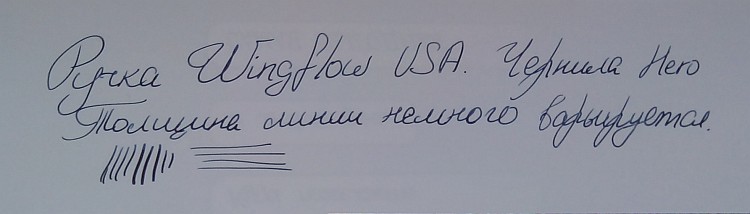 Ручка Wingflow USA. Чернила Hero
Толщина линии немного варьируется.